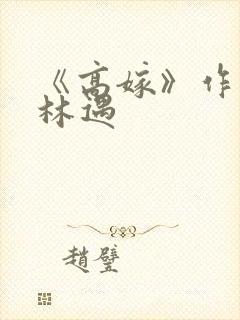 《高嫁》作
林遇
趙璧